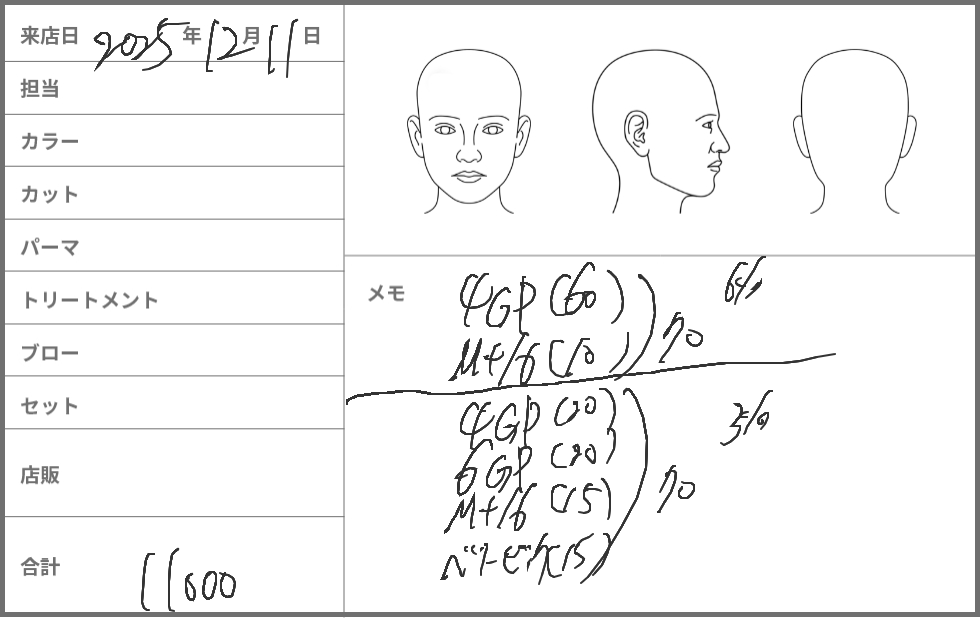 来店日 2025年12月11日
担当
カラー
カット
パーマ
トリートメント
ブロー
セット
店販
合計 11000
メモ
4GP (60)
M+/6 (10) 70
6%
4GP (20)
6GP (20)
M+/6 (15) 70
ベリーピンク(15)